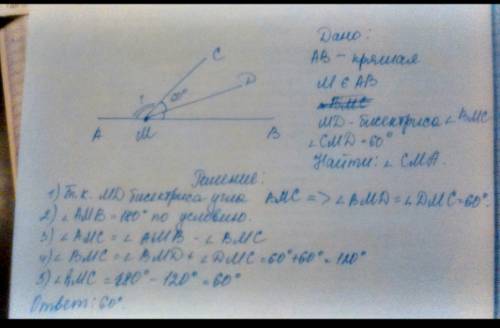 Дано:
AB - прямая
M ∈ AB
∠BMC
MD - биссектриса ∠BMC
∠CMD = 60°
Найти: ∠CMA.
C
D
?
60°
A
M
B
Решение:
1) Т.к. MD биссектриса угла AMC => ∠BMD = ∠DMC = 60°.
2) ∠AMB = 180° по условию.
3) ∠AMC = ∠AMB - ∠BMC
4) ∠BMC = ∠BMD + ∠DMC = 60° + 60° = 120°
5) ∠AMC = 180° - 120° = 60°
Ответ: 60°.